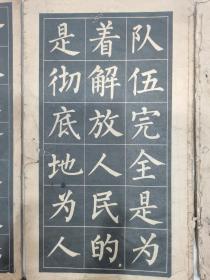 队伍完全是为
着解放人民的，
是彻底地为人